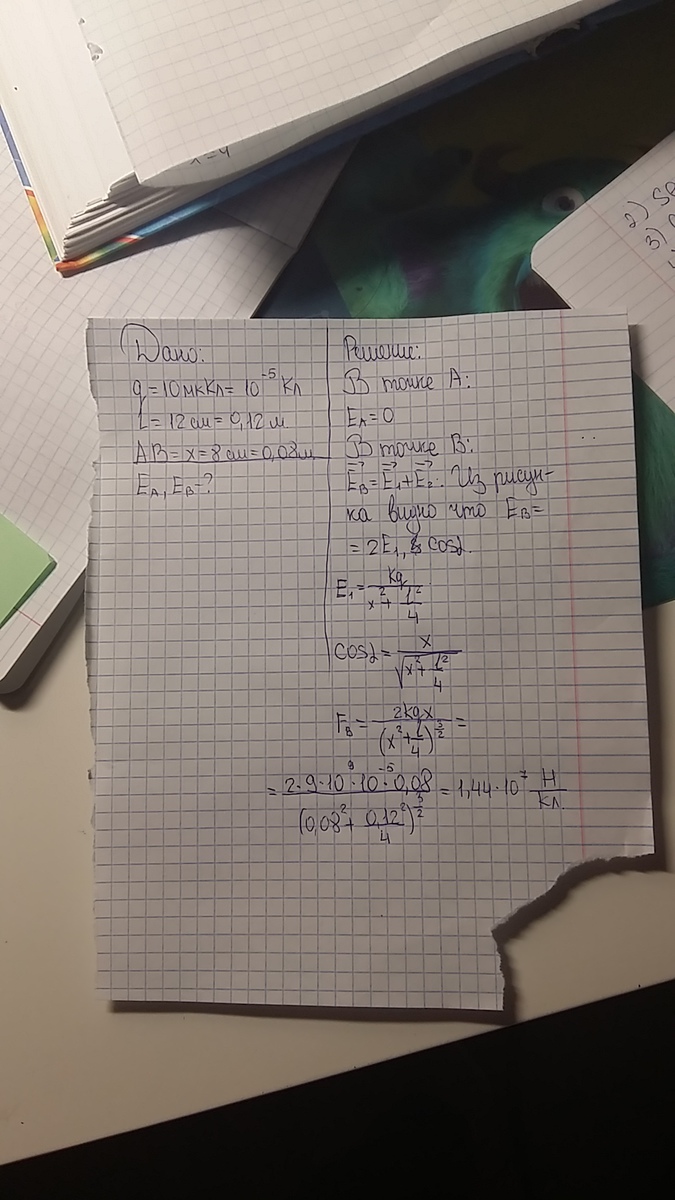 x=4
2) SE
3)
Дано:
q=10мкКл=10⁻⁵ Кл
l=12см=0,12м
AB=x=8см=0,08м
E_A, E_B=?
Решение:
В точке A:
E_A=0
В точке B:
E⃗_B=E⃗_1+E⃗_2. Из рисун-
ка видно что E_B=
=2E_1, cosα.
E_1=kq/(x²+l²/4)
cosα=x/√(x²+l²/4)
E_B=2kqx/(x²+l/4)^(3/2)=
=2·9·10⁹·10⁻⁵·0,08/(0,08²+0,12²/4)^(3/2)=1,44·10⁷ Н/Кл.